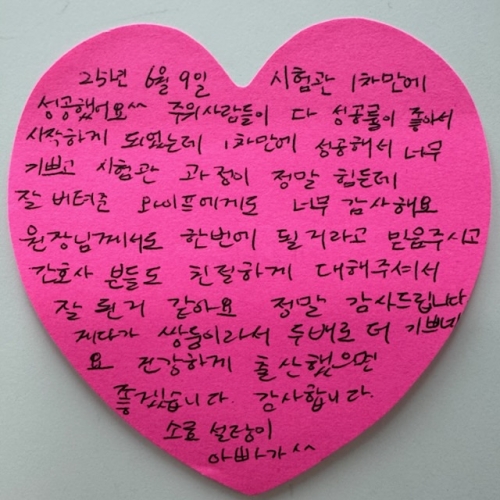 25년 6월 9일 시험관 1차만에
성공했어요^^ 주위사람들이 다 성공률이 좋아서
시작하게 되었는데 1차만에 성공해서 너무
기쁘고 시험관 과정이 정말 힘든데
잘 버텨준 와이프에게도 너무 감사해요
원장님께서도 한번에 될거라고 믿음주시고
간호사 분들도 친절하게 대해주셔서
잘 된거 같아요 정말 감사드립니다
게다가 쌍둥이라서 두배로 더 기쁘네
요 건강하게 출산했으면
좋겠습니다. 감사합니다.
소콩 설탕이
아빠가^^